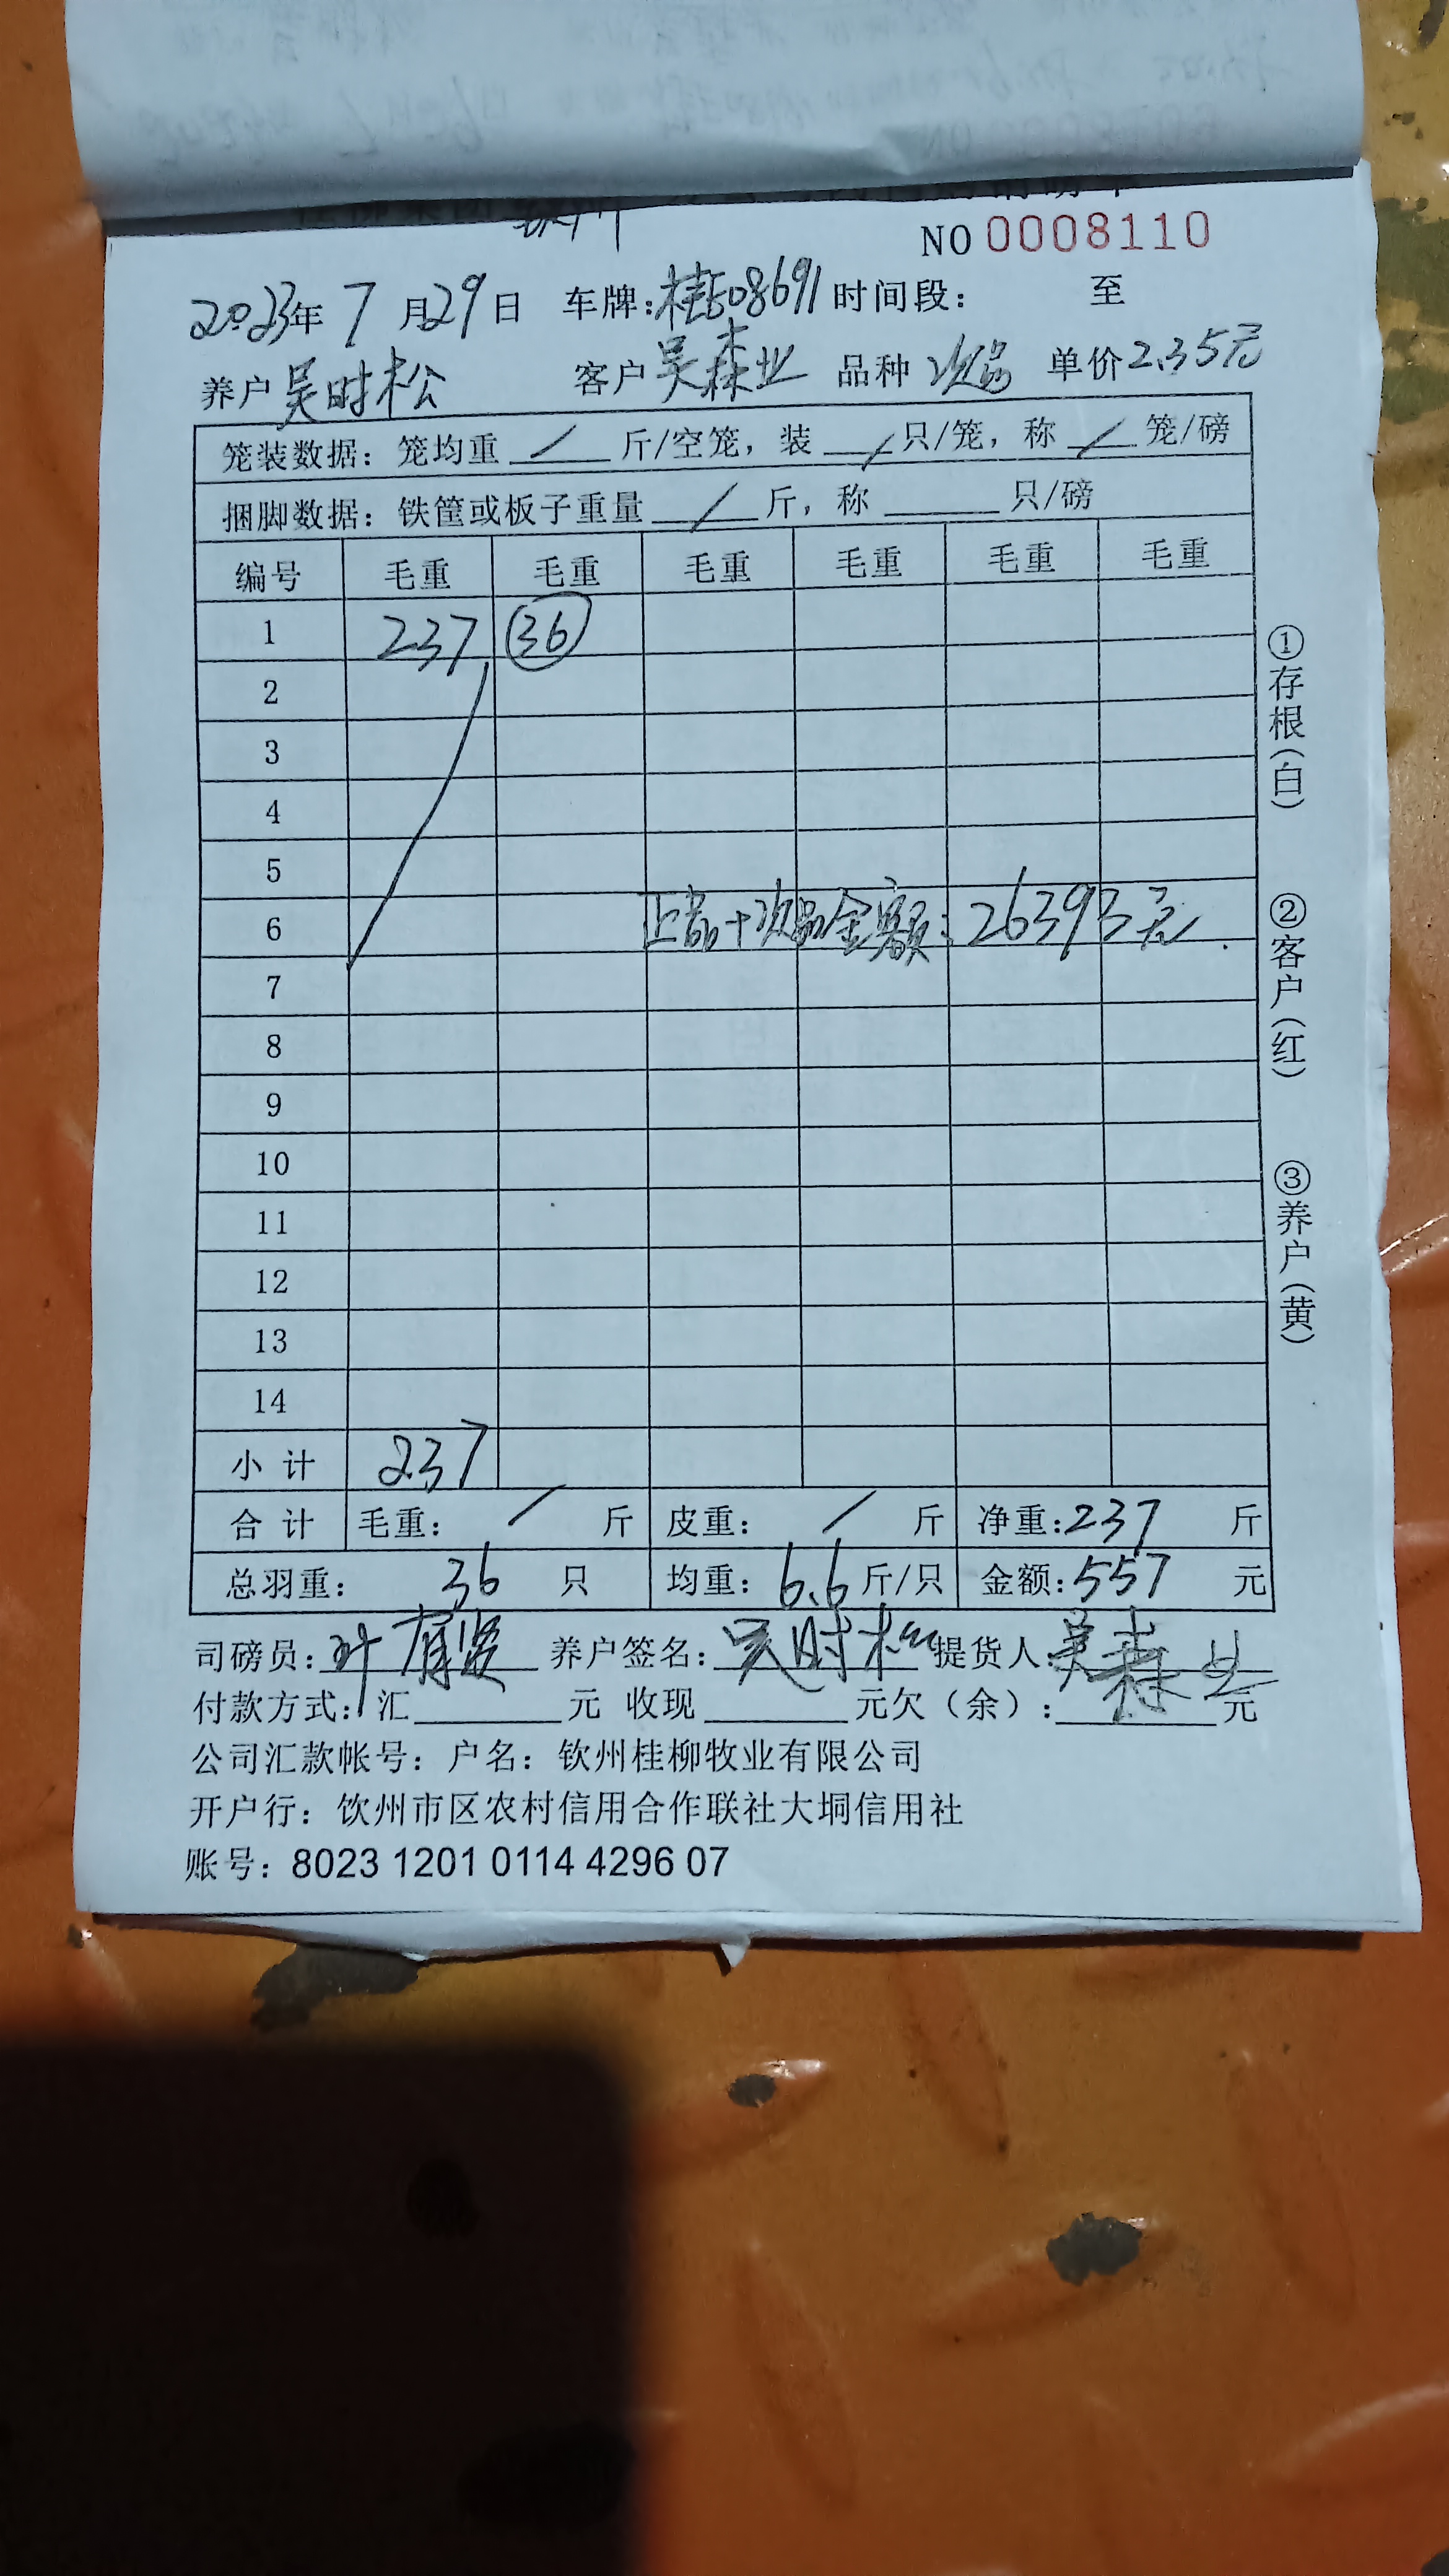 NO 0008110
2023年 7 月29日 车牌:桂E08691 时间段: 至
养户 吴时松 客户 吴森业 品种 次品 单价 2.35元
笼装数据: 笼均重 / 斤/空笼, 装 / 只/笼, 称 / 笼/磅
捆脚数据: 铁筐或板子重量 / 斤, 称 只/磅
编号 毛重 毛重 毛重 毛重 毛重 毛重
1 237 36
2
3
4
5
6 正品+次品金额: 26393元
7
8
9
10
11
12
13
14
小计 237
合计 毛重: / 斤 皮重: / 斤 净重:237 斤
总羽重: 36 只 均重: 6.6 斤/只 金额:557 元
司磅员: 叶有贤 养户签名: 吴时松 提货人:吴森业
付款方式: 汇 元 收现 元欠(余): 元
公司汇款帐号: 户名: 钦州桂柳牧业有限公司
开户行: 钦州市区农村信用合作联社大垌信用社
账号: 8023 1201 0114 4296 07
①存根(白)
②客户(红)
③养户(黄)